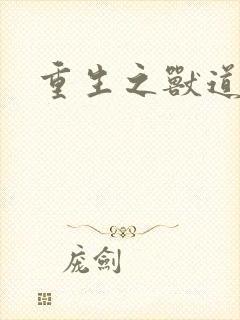 重生之獸道
庞劍